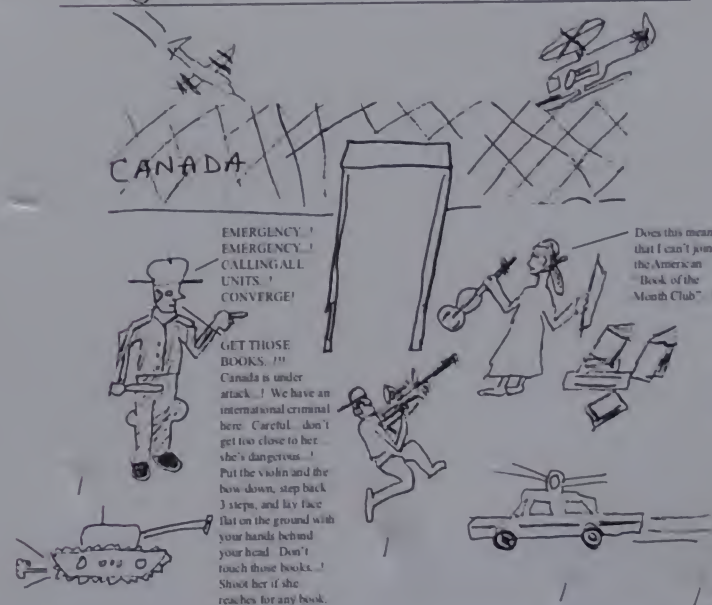 CANADA
EMERGENCY...!
EMERGENCY...!
CALLING ALL
UNITS...!
CONVERGE!
GET THOSE
BOOKS...!!!
Canada is under
attack...! We have an
international criminal
here. Careful... don't
get too close to her...
she's dangerous...!
Put the violin and the
bow down, step back
3 steps, and lay face
flat on the ground with
your hands behind
your head. Don't
touch those books...!
Shoot her if she
reaches for any book.
Does this mean
that I can't join
the American
"Book of the
Month Club"